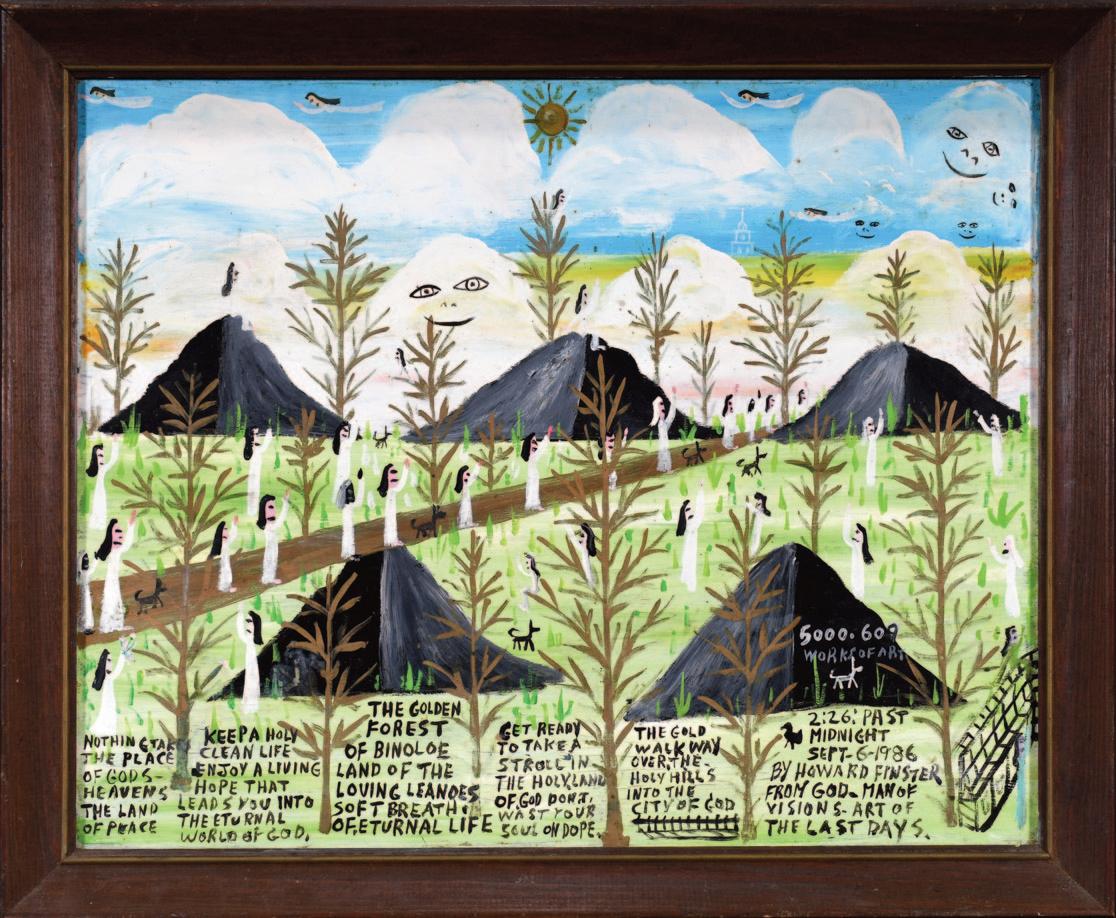 5000.609
WORKS OF ART
NOTHING TAK
THE PLACE
OF GODS-
HEAVENS
THE LAND
OF PEACE
KEEP A HOLY
CLEAN LIFE
ENJOY A LIVING
HOPE THAT
LEADS YOU INTO
THE ETURNAL
WORLD OF GOD,
THE GOLDEN
FOREST
OF BINOLOE
LAND OF THE
LOVING LEANOES
SOFT BREATH
OF ETURNAL LIFE
GET READY
TO TAKE A
STROLL IN
THE HOLY LAND
OF GOD DONT,
WAST YOUR
SOUL ON DOPE.
THE GOLD
WALK WAY
OVER THE-
HOLY HILLS
INTO THE
CITY OF GOD
2:26: PAST
MIDNIGHT
SEPT-6-1986
BY HOWARD FINSTER
FROM GOD-MAN OF
VISIONS-ART OF
THE LAST DAYS.